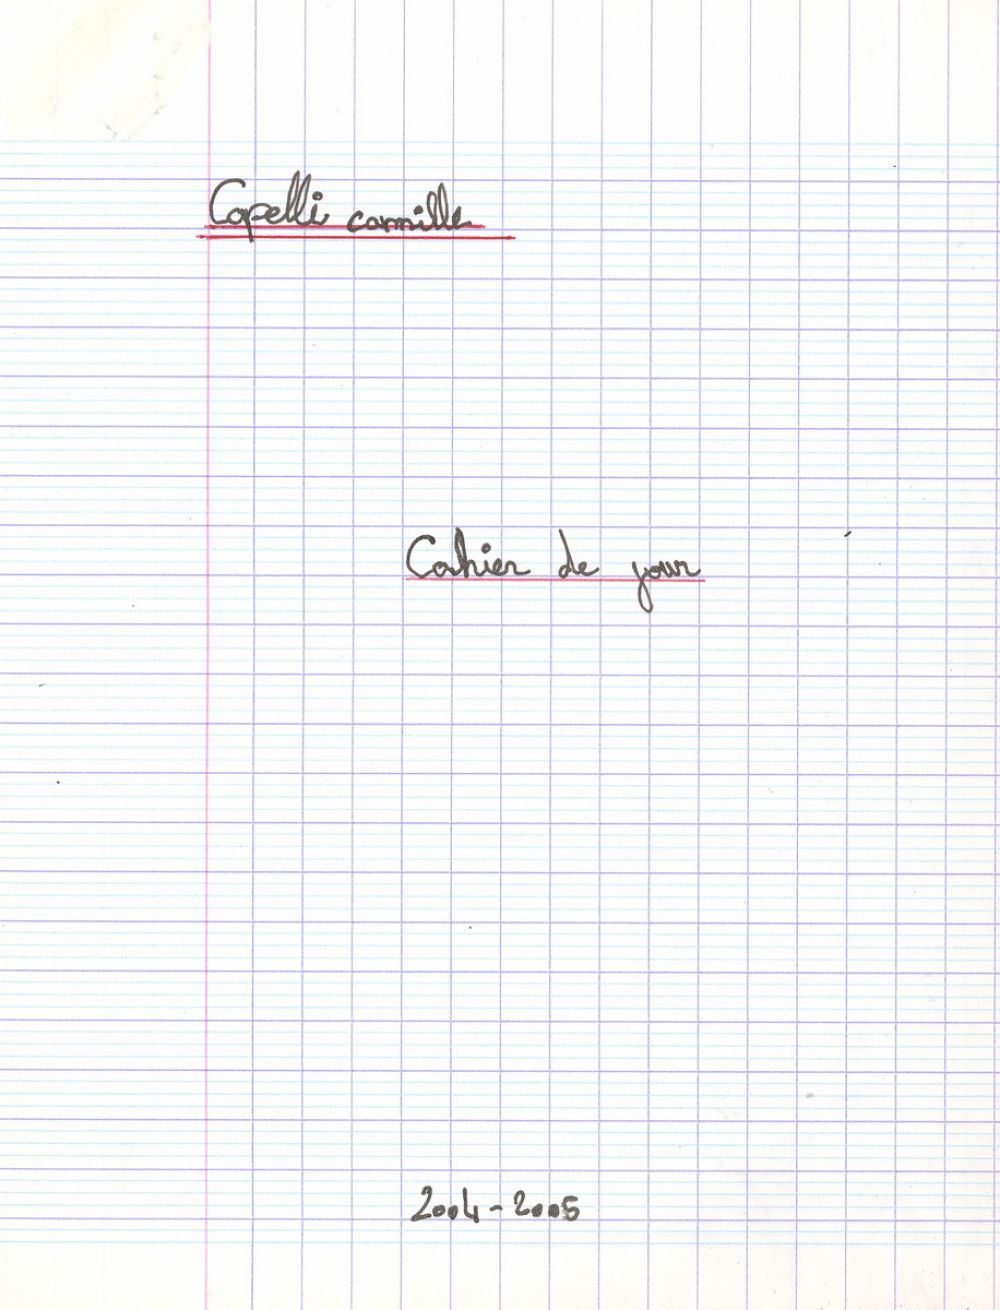 Capelli camille
Cahier de jour
2004-2005